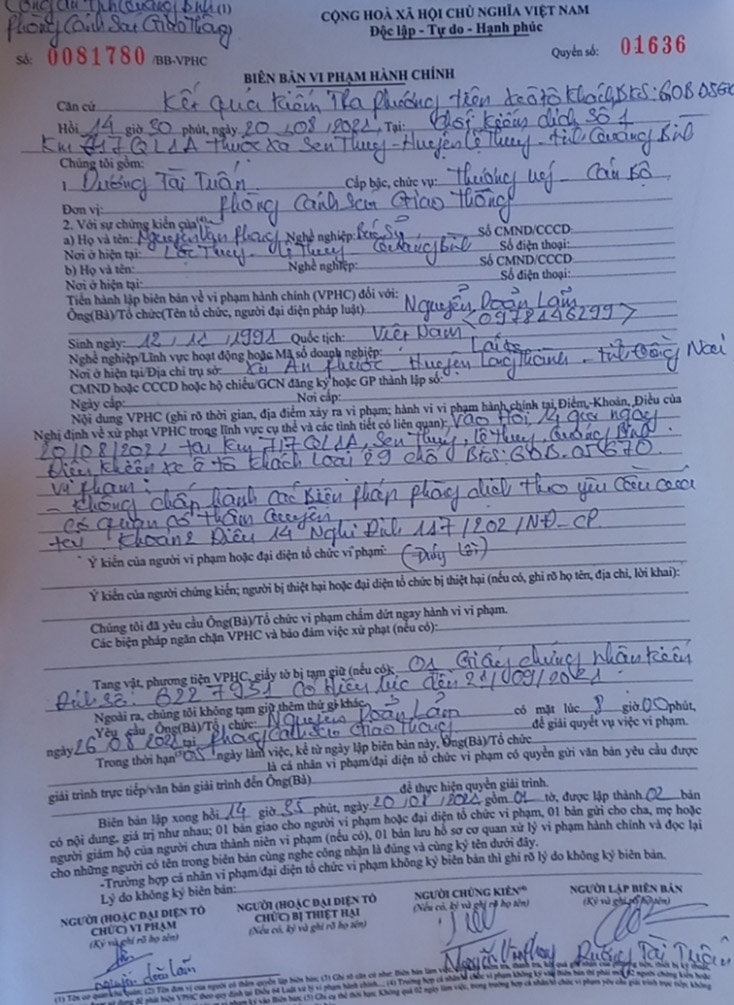 Công an Tỉnh Quảng Bình (1)
Phòng Cảnh Sát Giao Thông
CỘNG HOÀ XÃ HỘI CHỦ NGHĨA VIỆT NAM
Độc lập - Tự do - Hạnh phúc
Số: 0081780 /BB-VPHC
Quyển số: 01636
BIÊN BẢN VI PHẠM HÀNH CHÍNH
Căn cứ Kết quả kiểm tra phương tiện xe ô tô khách, Bks: 60B 056
Hồi 14 giờ 30 phút, ngày 20/08/2021, Tại: Chốt kiểm dịch số 1
Km 717 QL1A thuộc xã Sen Thủy - Huyện Lệ Thủy - tỉnh Quảng Bình
Chúng tôi gồm:
1. Dương Tài Tuấn Cấp bậc, chức vụ: Thượng uý - Cán bộ
Đơn vị: Phòng Cảnh Sát Giao Thông
2. Với sự chứng kiến của:
a) Họ và tên: Nguyễn Văn Nghề nghiệp: Bác Sỹ Số CMND/CCCD:
Nơi ở hiện tại: Thủy - Lệ Thủy - Quảng Bình Số điện thoại:
b) Họ và tên: Nghề nghiệp: Số CMND/CCCD:
Nơi ở hiện tại: Số điện thoại:
Tiến hành lập biên bản về vi phạm hành chính (VPHC) đối với:
Ông(Bà)/Tổ chức(Tên tổ chức, người đại diện pháp luật) Nguyễn Doãn Lãm
<0978146299>
Sinh ngày: 12/11/1991 Quốc tịch: Việt Nam
Nghề nghiệp/Lĩnh vực hoạt động hoặc Mã số doanh nghiệp: Lái xe
Nơi ở hiện tại/Địa chỉ trụ sở: Xã An Phước - Huyện Long Thành - tỉnh Đồng Nai
CMND hoặc CCCD hoặc hộ chiếu/GCN đăng ký/hoặc GP thành lập số:
Ngày cấp: Nơi cấp:
Nội dung VPHC (ghi rõ thời gian, địa điểm xảy ra vi phạm; hành vi vi phạm hành chính tại Điểm, Khoản, Điều của
Nghị định về xử phạt VPHC trong lĩnh vực cụ thể và các tình tiết có liên quan): Vào Hồi 14 giờ ngày
20/08/2021 tại Km 717 QL1A, Sen Thủy, Lệ Thủy, Quảng Bình
Điều khiển xe ô tô khách loại 29 chỗ Bks: 60B. 05670.
Vi phạm:
- Không chấp hành các biện pháp phòng dịch theo yêu cầu của
cơ quan có thẩm quyền
tại Khoản 2 Điều 14 Nghị Định 117/202 /NĐ-CP
Ý kiến của người vi phạm hoặc đại diện tổ chức vi phạm:
Ý kiến của người chứng kiến; người bị thiệt hại hoặc đại diện tổ chức bị thiệt hại (nếu có, ghi rõ họ tên, địa chỉ, lời khai):
Chúng tôi đã yêu cầu Ông(Bà)/Tổ chức vi phạm chấm dứt ngay hành vi vi phạm.
Các biện pháp ngăn chặn VPHC và bảo đảm việc xử phạt (nếu có):
Tang vật, phương tiện VPHC, giấy tờ bị tạm giữ (nếu có): 01 Giấy chứng nhận kiểm
Định số. 6227951 có hiệu lực đến 21/09/2021
Ngoài ra, chúng tôi không tạm giữ thêm thứ gì khác.
Yêu cầu Ông(Bà)/Tổ chức: Nguyễn Doãn Lãm có mặt lúc 8 giờ 00 phút,
ngày 26/08/2021 tại Phòng Cảnh Sát Giao Thông để giải quyết vụ việc vi phạm.
Trong thời hạn 05 ngày làm việc, kể từ ngày lập biên bản này, Ông(Bà)/Tổ chức
là cá nhân vi phạm/đại diện tổ chức vi phạm có quyền gửi văn bản yêu cầu được
giải trình trực tiếp/văn bản giải trình đến Ông(Bà) để thực hiện quyền giải trình.
Biên bản lập xong hồi 14 giờ 35 phút, ngày 20/08/2021 gồm 01 tờ, được lập thành 02 bản
có nội dung, giá trị như nhau; 01 bản giao cho người vi phạm hoặc đại diện tổ chức vi phạm, 01 bản gửi cho cha, mẹ hoặc
người giám hộ của người chưa thành niên vi phạm (nếu có), 01 bản lưu hồ sơ cơ quan xử lý vi phạm hành chính và đọc lại
cho những người có tên trong biên bản cùng nghe công nhận là đúng và cùng ký tên dưới đây.
-Trường hợp cá nhân vi phạm/đại diện tổ chức vi phạm không ký biên bản thì ghi rõ lý do không ký biên bản.
Lý do không ký biên bản:
NGƯỜI (HOẶC ĐẠI DIỆN TỔ CHỨC) VI PHẠM
(Ký và ghi rõ họ tên)
nguyễn doãn lãm
NGƯỜI (HOẶC ĐẠI DIỆN TỔ CHỨC) BỊ THIỆT HẠI
(Nếu có, ký và ghi rõ họ tên)
NGƯỜI CHỨNG KIẾN
(Nếu có, ký và ghi rõ họ tên)
NGƯỜI LẬP BIÊN BẢN
(Ký và ghi rõ họ tên)
Dương Tài Tuấn